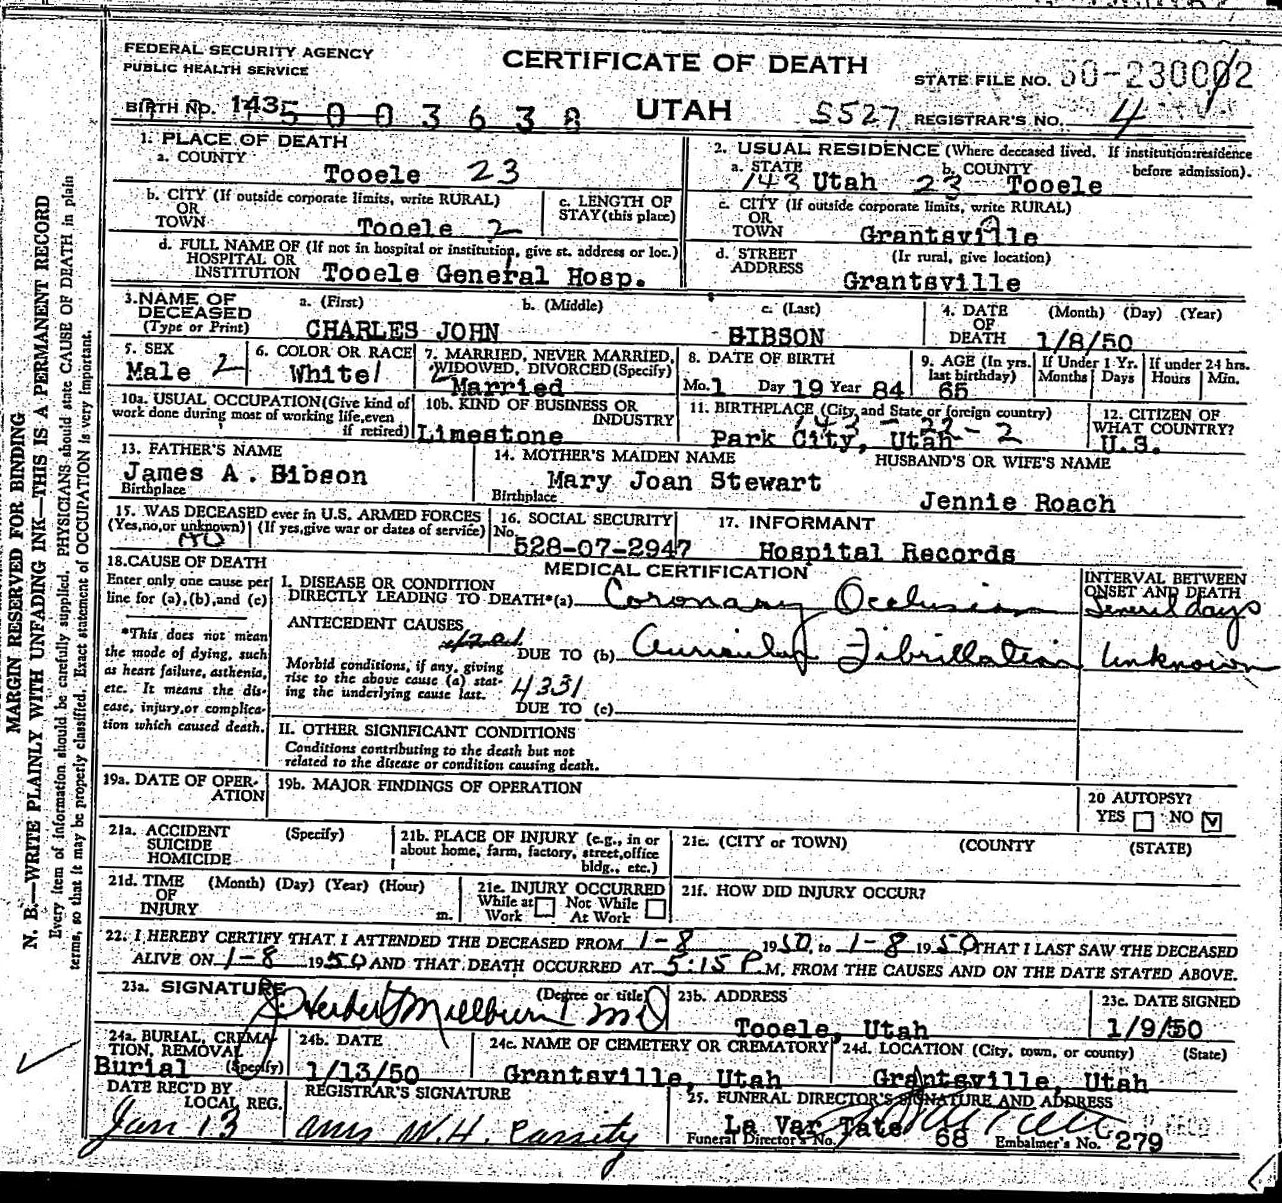 FEDERAL SECURITY AGENCY
PUBLIC HEALTH SERVICE
CERTIFICATE OF DEATH
STATE FILE NO. 50-230002
BIRTH NO. 143 5 0 0 3 6 3 8
UTAH
S527 REGISTRAR'S NO. 4
1. PLACE OF DEATH
a. COUNTY
Tooele 23
2. USUAL RESIDENCE (Where deceased lived. If institution: residence before admission).
a. STATE 143 Utah 23 b. COUNTY Tooele
b. CITY (If outside corporate limits, write RURAL)
OR
TOWN Tooele 2
c. LENGTH OF
STAY (this place)
c. CITY (If outside corporate limits, write RURAL)
OR
TOWN Grantsville
d. FULL NAME OF (If not in hospital or institution, give st. address or loc.)
HOSPITAL OR
INSTITUTION Tooele General Hosp.
d. STREET (Ir rural, give location)
ADDRESS
Grantsville
3. NAME OF
DECEASED
(Type or Print)
a. (First) b. (Middle) c. (Last)
CHARLES JOHN BIBSON
4. DATE (Month) (Day) (Year)
OF
DEATH 1/8/50
5. SEX
Male 2
6. COLOR OR RACE
White 1
7. MARRIED, NEVER MARRIED,
WIDOWED, DIVORCED (Specify)
2 Married
8. DATE OF BIRTH
Mo. 1 Day 19 Year 84
9. AGE (In yrs.
last birthday)
65
If Under 1 Yr.
Months Days
If under 24 hrs.
Hours Min.
10a. USUAL OCCUPATION (Give kind of
work done during most of working life, even
if retired)
10b. KIND OF BUSINESS OR
INDUSTRY
Limestone
11. BIRTHPLACE (City and State or foreign country)
143 - 22 - 2
Park City, Utah
12. CITIZEN OF
WHAT COUNTRY?
U.S.
13. FATHER'S NAME
James A. Bibson
Birthplace
14. MOTHER'S MAIDEN NAME
Mary Joan Stewart
Birthplace
HUSBAND'S OR WIFE'S NAME
Jennie Roach
15. WAS DECEASED ever in U.S. ARMED FORCES
(Yes, no, or unknown) (If yes, give war or dates of service)
no
16. SOCIAL SECURITY
No.
528-07-2947
17. INFORMANT
Hospital Records
18. CAUSE OF DEATH
Enter only one cause per
line for (a), (b), and (c)
*This does not mean
the mode of dying, such
as heart failure, asthenia,
etc. It means the dis-
ease, injury, or complica-
tion which caused death.
MEDICAL CERTIFICATION
I. DISEASE OR CONDITION
DIRECTLY LEADING TO DEATH*(a) Coronary Occlusion
ANTECEDENT CAUSES
4201
DUE TO (b) Auricular Fibrillation
Morbid conditions, if any, giving
rise to the above cause (a) stat-
ing the underlying cause last. 4331
DUE TO (c)
INTERVAL BETWEEN
ONSET AND DEATH
Several days
Unknown
II. OTHER SIGNIFICANT CONDITIONS
Conditions contributing to the death but not
related to the disease or condition causing death.
19a. DATE OF OPER-
ATION
19b. MAJOR FINDINGS OF OPERATION
20 AUTOPSY?
YES NO
21a. ACCIDENT (Specify)
SUICIDE
HOMICIDE
21b. PLACE OF INJURY (e.g., in or
about home, farm, factory, street, office
bldg., etc.)
21c. (CITY or TOWN) (COUNTY (STATE)
21d. TIME (Month) (Day) (Year) (Hour)
OF
INJURY m.
21e. INJURY OCCURRED
While at Not While
Work At Work
21f. HOW DID INJURY OCCUR?
22. I HEREBY CERTIFY THAT I ATTENDED THE DECEASED FROM 1-8 1950, to 1-8 1950 THAT I LAST SAW THE DECEASED
ALIVE ON 1-8 1950 AND THAT DEATH OCCURRED AT 5:15 P.M, FROM THE CAUSES AND ON THE DATE STATED ABOVE.
23a. SIGNATURE (Degree or title)
J Herbert Millburn MD
23b. ADDRESS
Tooele, Utah
23c. DATE SIGNED
1/9/50
24a. BURIAL, CREMA-
TION, REMOVAL
Burial (Specify)
24b. DATE
1/13/50
24c. NAME OF CEMETERY OR CREMATORY
Grantsville, Utah
24d. LOCATION (City, town, or county) (State)
Grantsville, Utah
DATE REC'D BY
LOCAL REG.
Jan 13
REGISTRAR'S SIGNATURE
W.H. Cassity
25. FUNERAL DIRECTOR'S SIGNATURE AND ADDRESS
La Var Tate
Funeral Director's No. 68 Embalmer's No. 279
MARGIN RESERVED FOR BINDING
N. B.—WRITE PLAINLY WITH UNFADING INK—THIS IS A PERMANENT RECORD
Every item of information should be carefully supplied. PHYSICIANS should state CAUSE OF DEATH in plain
terms, so that it may be properly classified. Exact statement of OCCUPATION is very important.